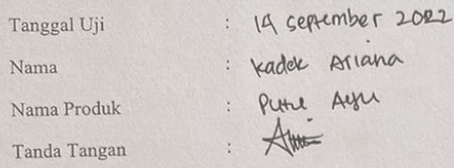 Tanggal Uji : 14 september 2022
Nama : Kadek Ariana
Nama Produk : Putu Ayu
Tanda Tangan :